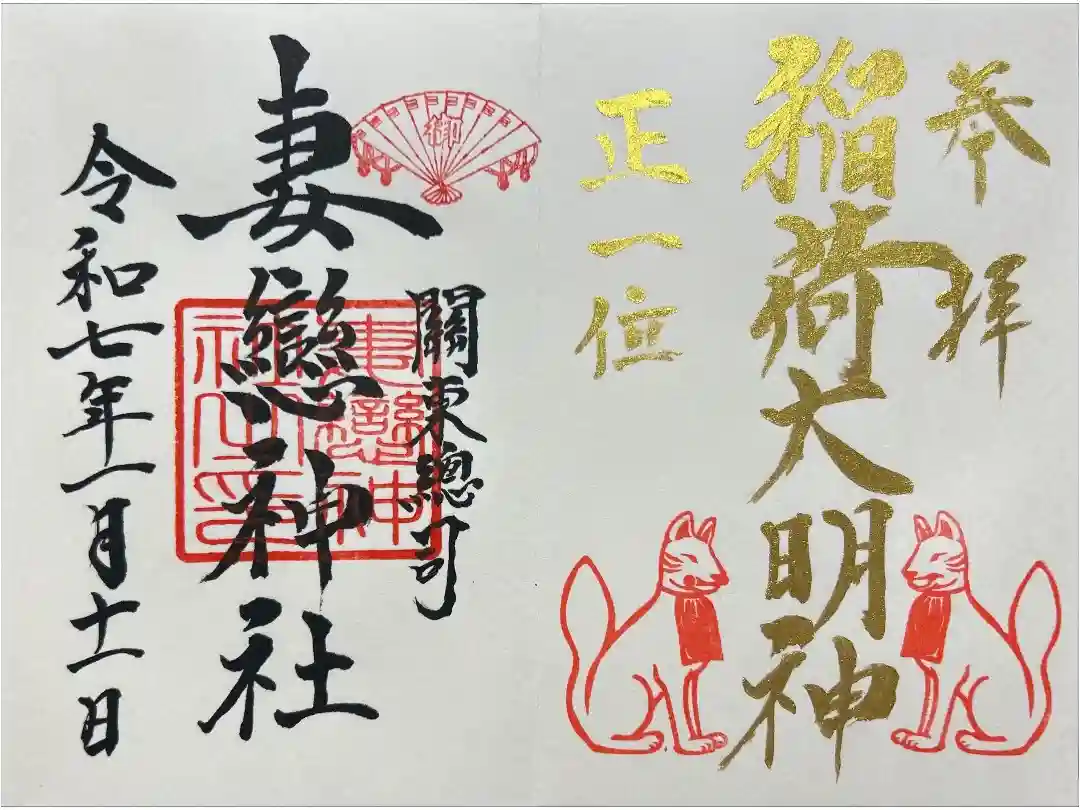 奉拝
稲荷大明神
正一位
御
關東總司
妻戀神社
妻戀神社之印
令和七年一月十一日